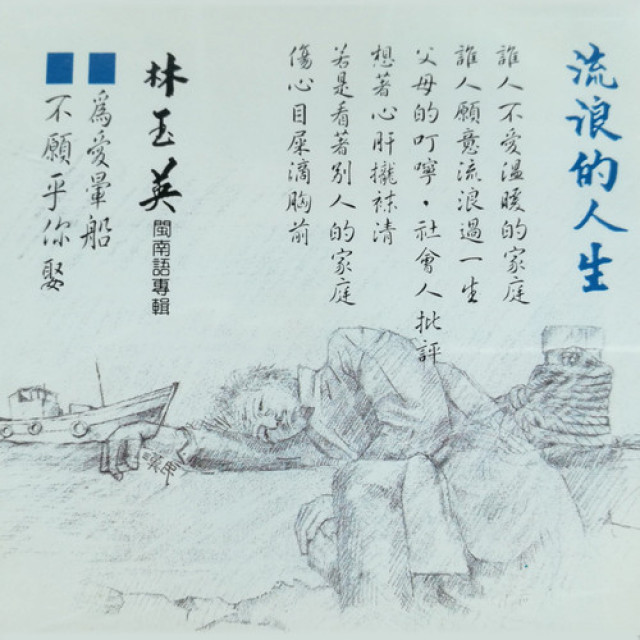 流浪的人生
誰人不愛溫暖的家庭
誰人願意流浪過一生
父母的叮嚀・社會人批評
想著心肝攏袜清
若是看著別人的家庭
傷心目犀滴胸前
林玉英
閩南語專輯
為愛暈船
不願乎你娶